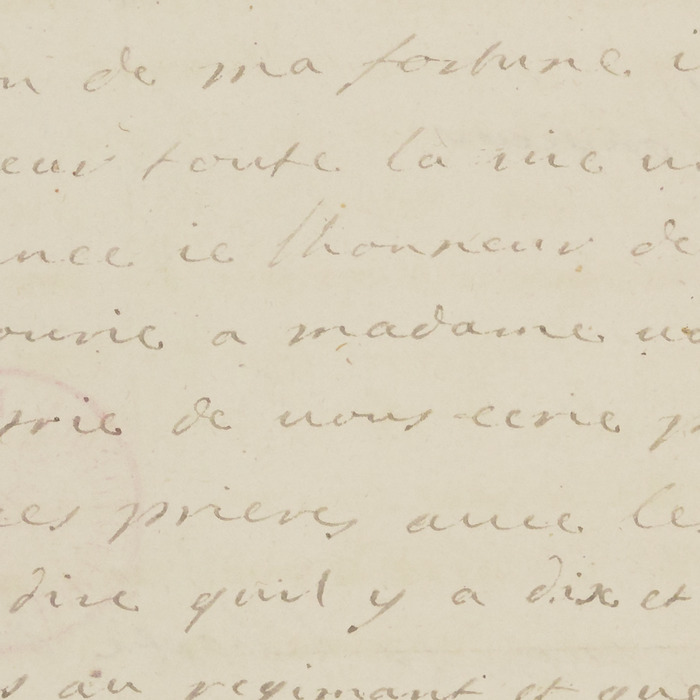 de ma fortune
toute la vie
ie lhonneur de
a madame
prie de vous ecrie
prieres auec les
dire quil y a dix et
au regimant et que